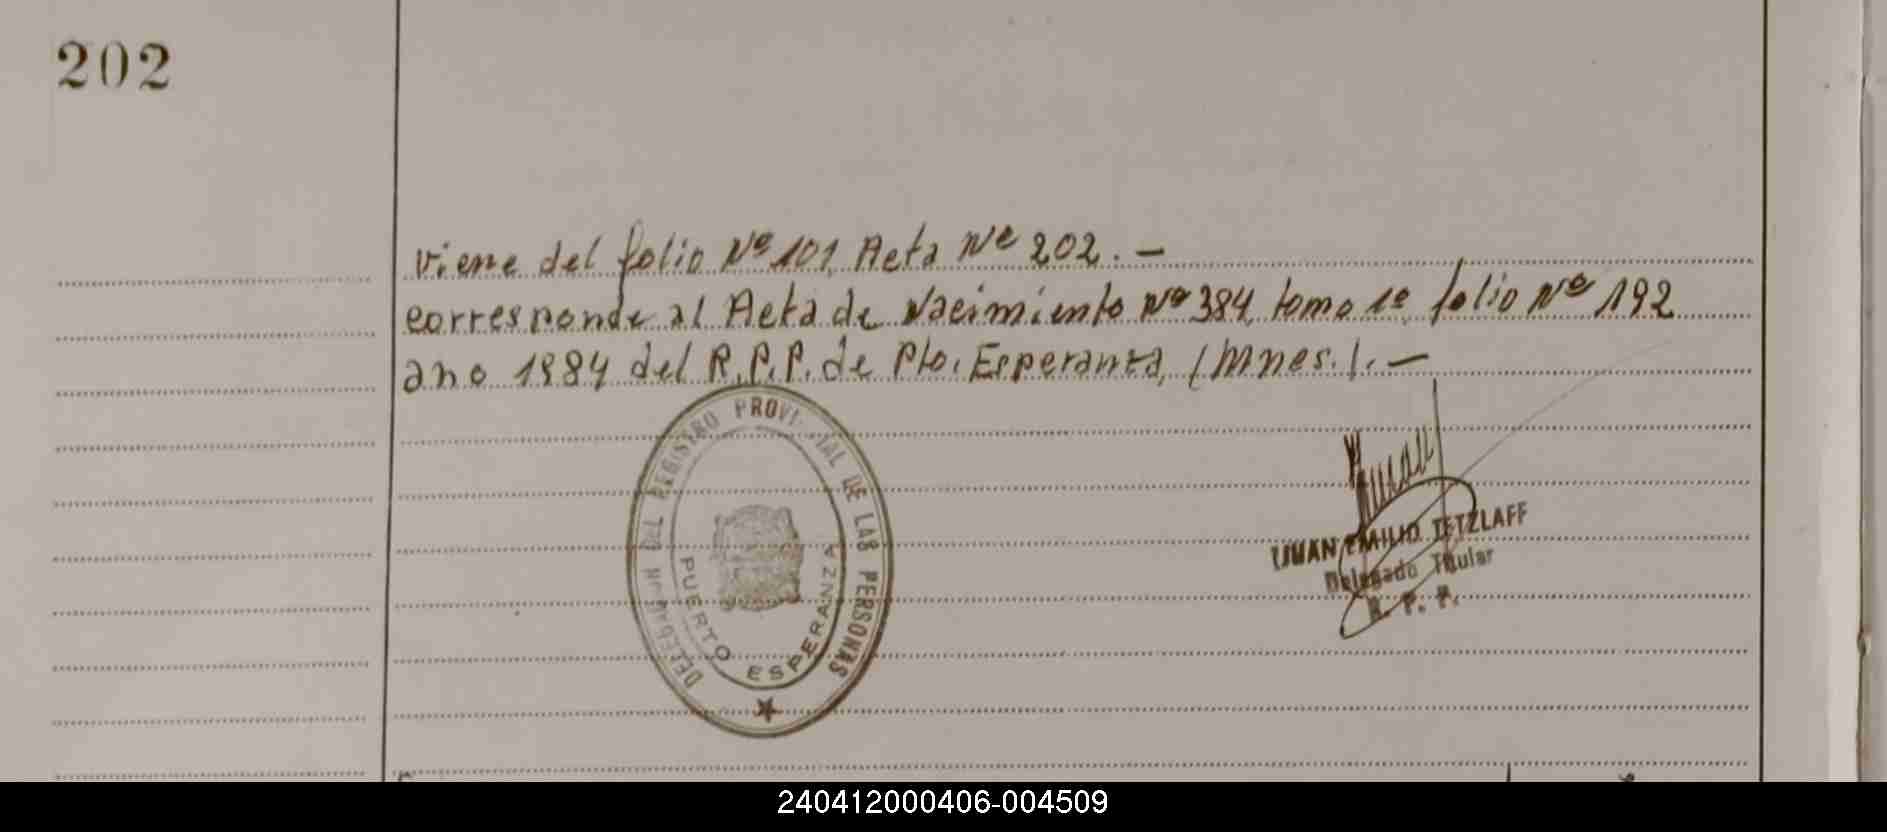 202
viene del folio Nº 101, Acta Nº 202. —
corresponde al Acta de Nacimiento Nº 384, tomo 1º, folio Nº 192
ano 1984 del R.P.P. de Pto. Esperanza, (Mnes.). —
DEL REGISTRO PROVINCIAL DE LAS PERSONAS
PUERTO ESPERANZA
JUAN EMILIO TETZLAFF
Delegado Titular
R. P. P.
240412000406-004509